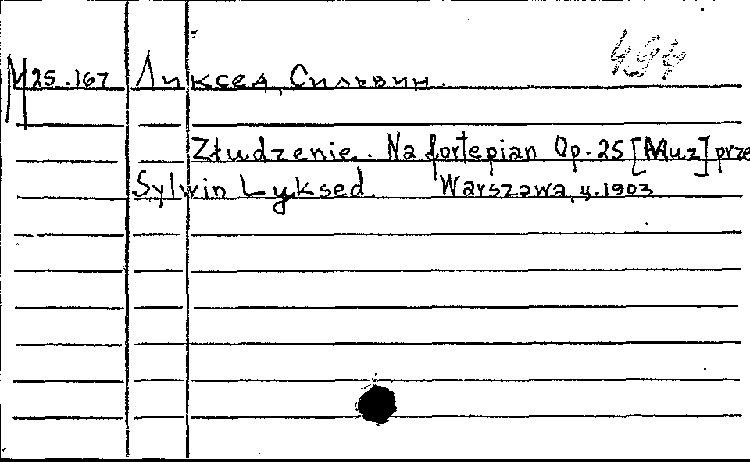 494
М 25.167 Ликсед, Сильвин.
Złudzenie. Na fortepian Op. 25 [Muz] prze
Sylwin Lyksed. Warszawa, ц. 1903